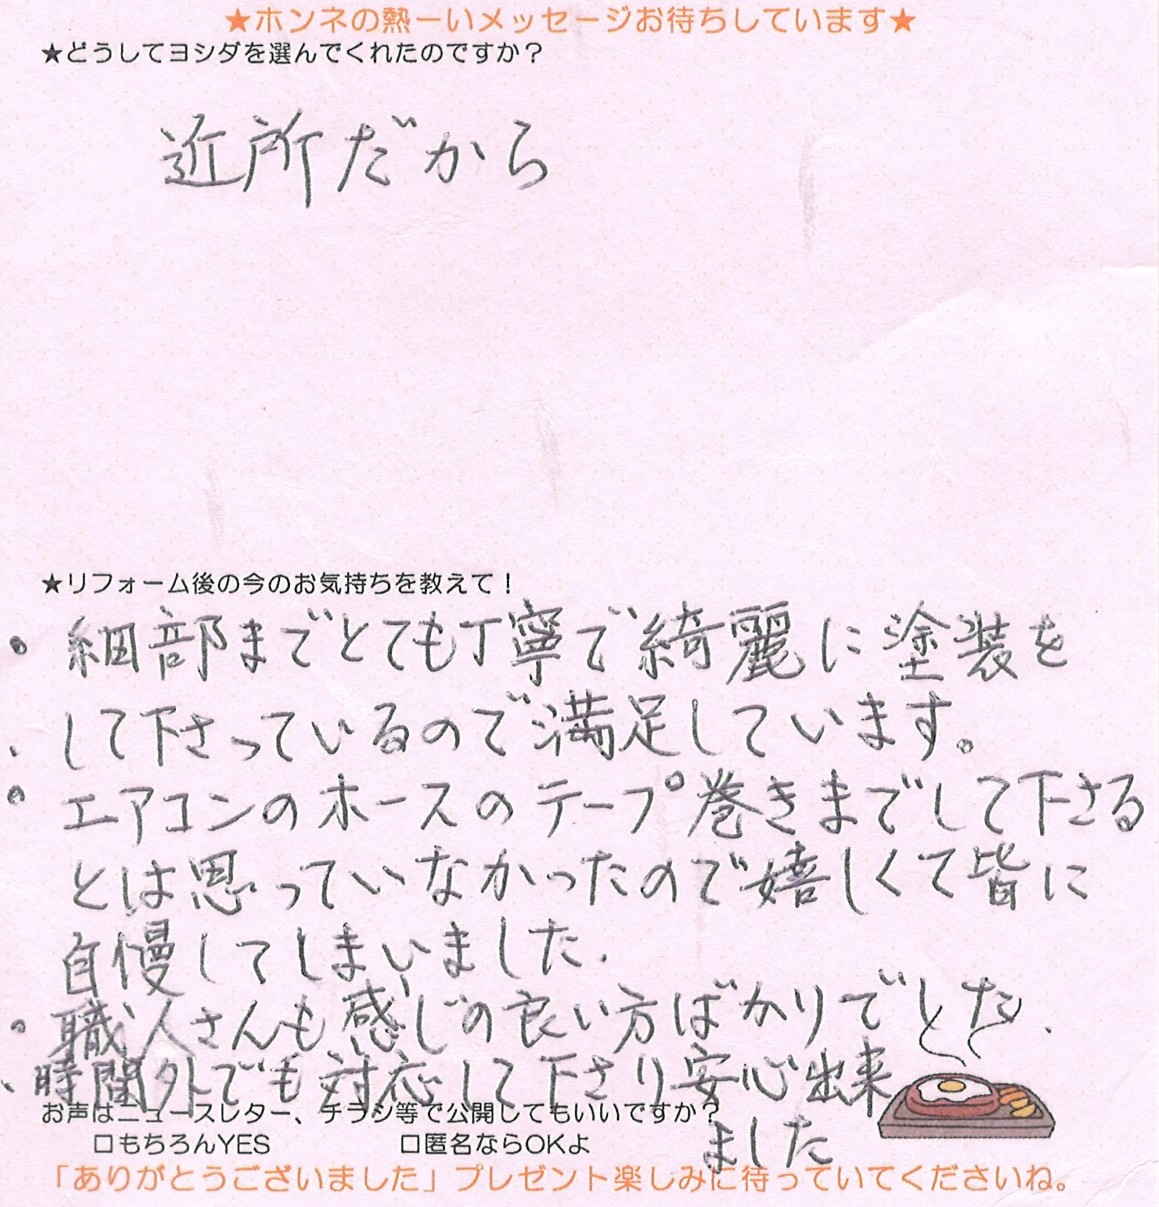 ★ホンネの熱ーいメッセージお待ちしています★
★どうしてヨシダを選んでくれたのですか？
近所だから
★リフォーム後の今のお気持ちを教えて！
・細部までとても丁寧で綺麗に塗装を
して下さっているので満足しています。
・エアコンのホースのテープ巻きまでして下さる
とは思っていなかったので嬉しくて皆に
自慢してしまいました.
・職人さんも感じの良い方ばかりでした.
、時間外でも対応して下さり安心出来
ました
お声はニュースレター、チラシ等で公開してもいいですか？
□もちろんYES □匿名ならOKよ
「ありがとうございました」プレゼント楽しみに待っていてくださいね。